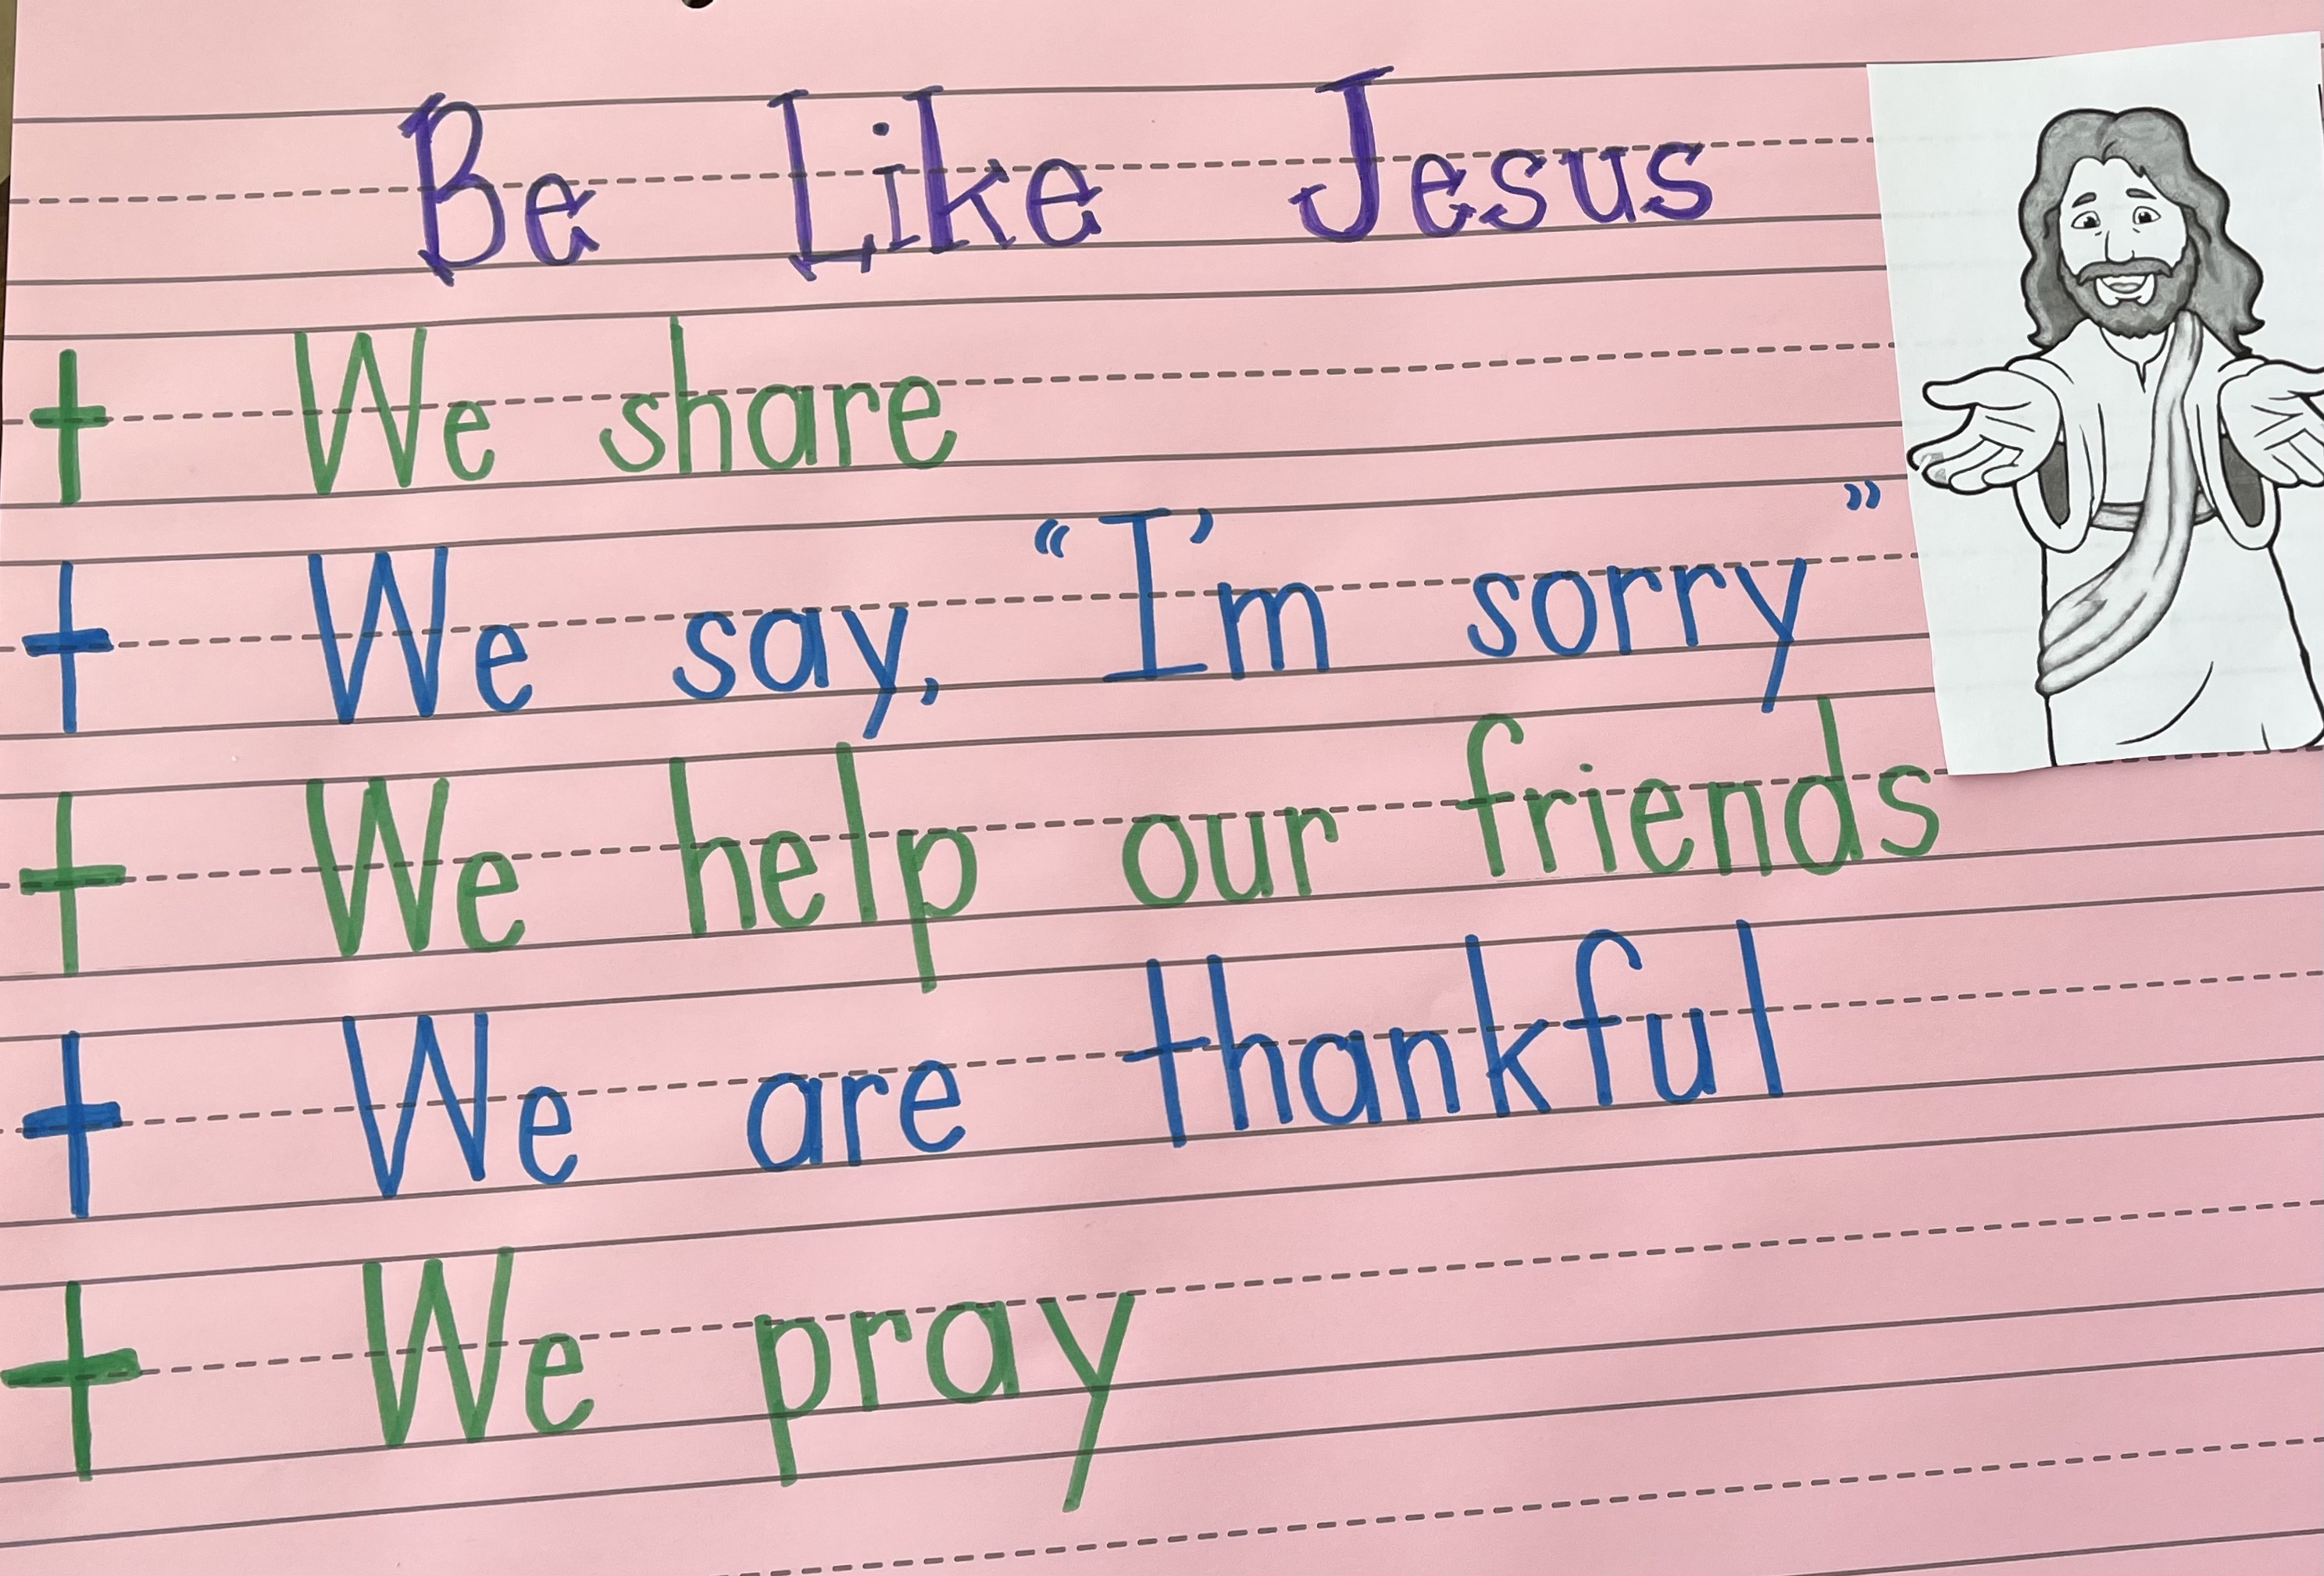 Be Like Jesus
† We share
† We say, “I’m sorry”
† We help our friends
† We are thankful
† We pray